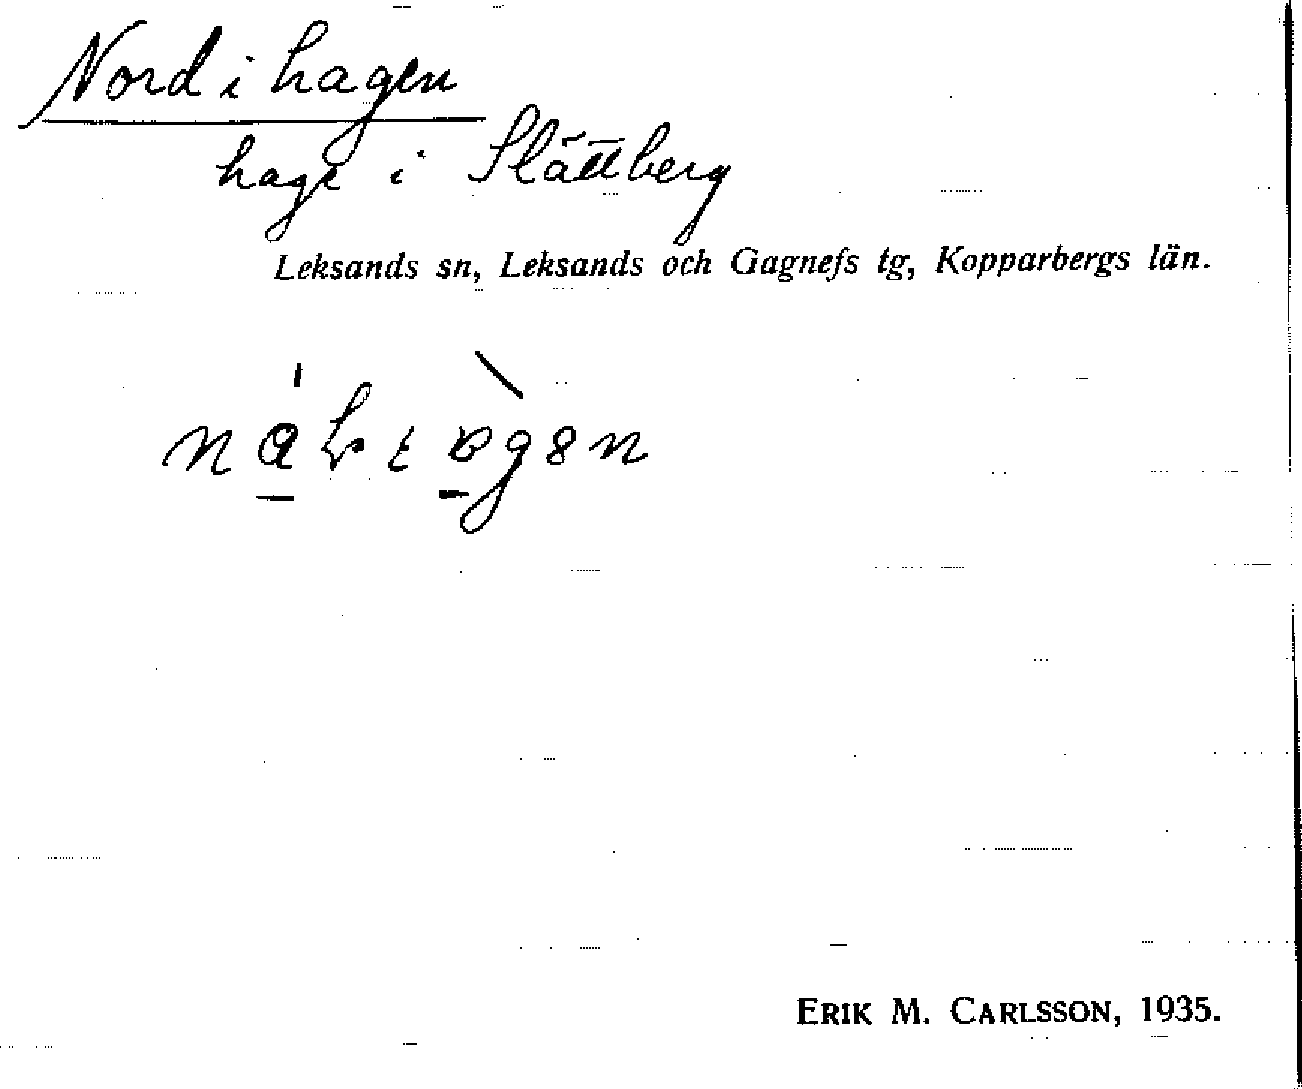 Nord i hagen
hage i Slättberg
Leksands sn, Leksands och Gagnefs tg, Kopparbergs län.
ERIK M. CARLSSON, 1935.